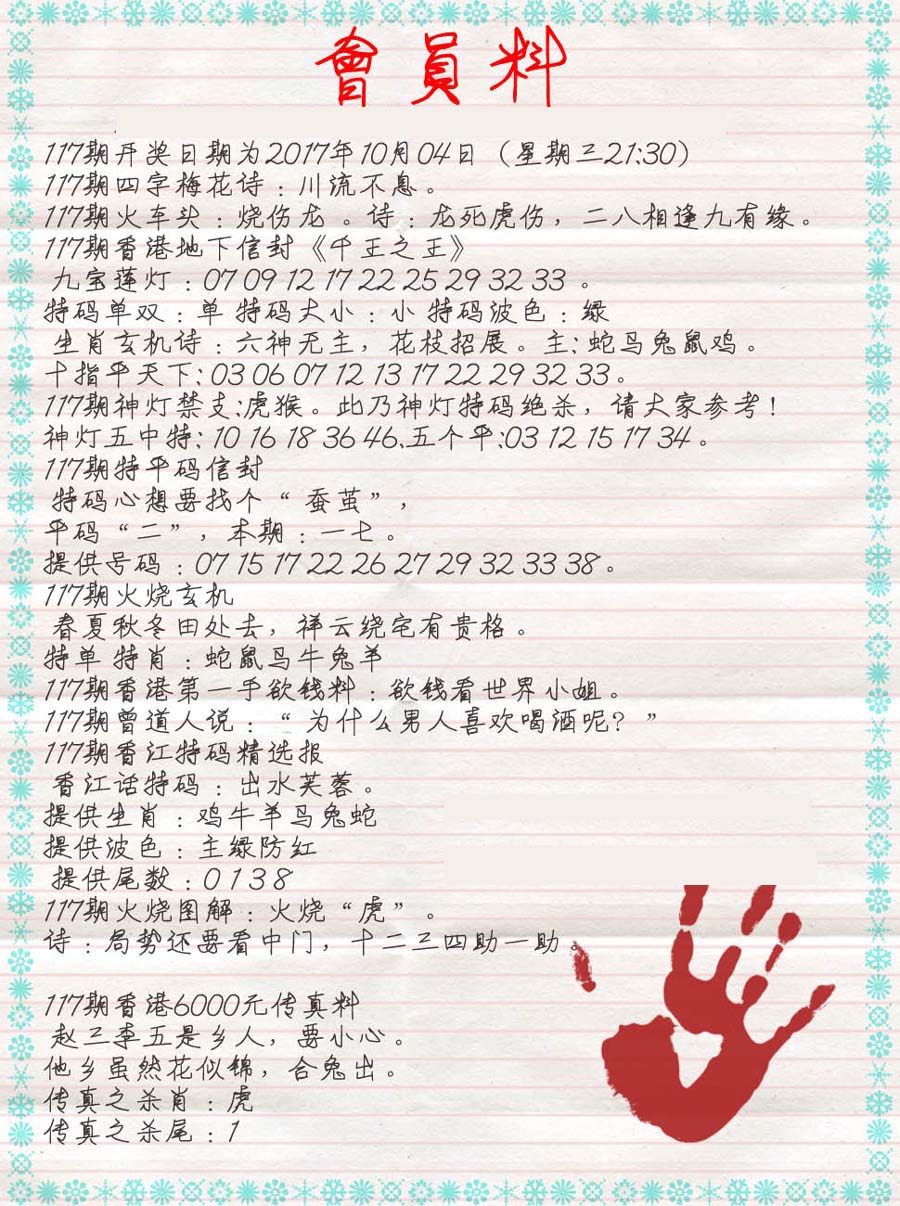 會員料
117期开奖日期为2017年10月04日（星期三21:30）
117期四字梅花诗：川流不息。
117期火车头：烧伤龙 。诗：龙死虎伤，二八相逢九有缘。
117期香港地下信封《千王之王》
九宝莲灯：07 09 12 17 22 25 29 32 33 。
特码单双：单 特码大小：小 特码波色：绿
生肖玄机诗：六神无主，花枝招展。主:蛇马兔鼠鸡。
十指平天下:03 06 07 12 13 17 22 29 32 33。
117期神灯禁支:虎猴。此乃神灯特码绝杀，请大家参考！
神灯五中特:10 16 18 36 46.五个平:03 12 15 17 34。
117期特平码信封
特码心想要找个“蚕茧”，
平码“二”，本期：一七。
提供号码：07 15 17 22 26 27 29 32 33 38。
117期火烧玄机
春夏秋冬田处去，祥云绕宅有贵格。
特单 特肖：蛇鼠马牛兔羊
117期香港第一手欲钱料：欲钱看世界小姐。
117期曾道人说：“为什么男人喜欢喝酒呢？”
117期香江特码精选报
香江话特码：出水芙蓉。
提供生肖：鸡牛羊马兔蛇
提供波色：主绿防红
提供尾数：0 1 3 8
117期火烧图解：火烧“虎”。
诗：局势还要看中门，十二三四助一助。
117期香港6000元传真料
赵三李五是乡人，要小心。
他乡虽然花似锦，合兔出。
传真之杀肖：虎
传真之杀尾：1